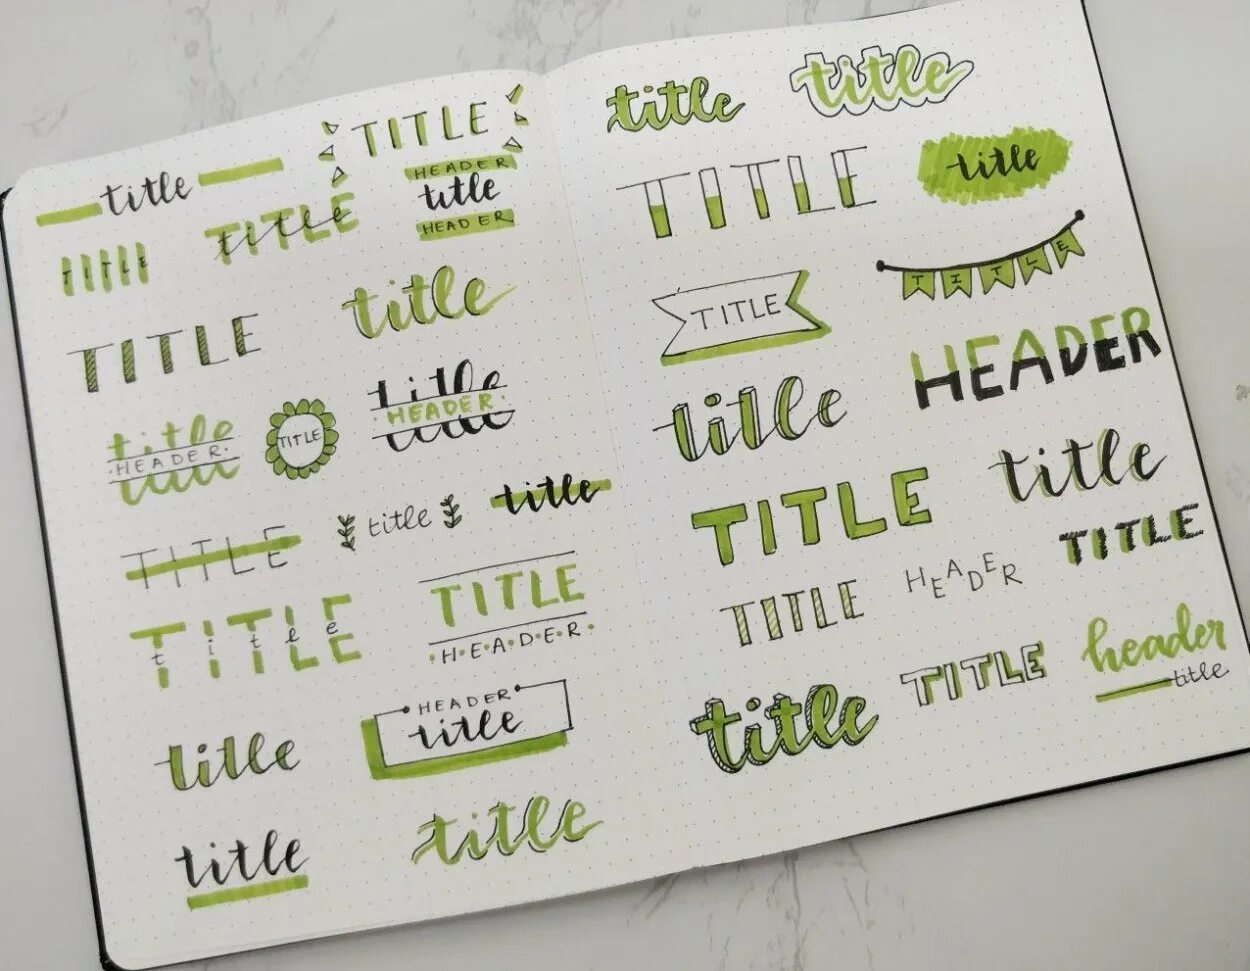 title
TITLE
HEADER
title
HEADER
TITLE
title
TITLE
title
TITLE
title
HEADER
TITLE
title
HEADER
title
title
TITLE
TITLE
title
TITLE
HEADER
title
HEADER
title
title
title
title
title
TITLE
title
TITLE
TITLE
HEADER
title
title
TITLE
TITLE
TITLE
HEADER
title
TITLE
header
title